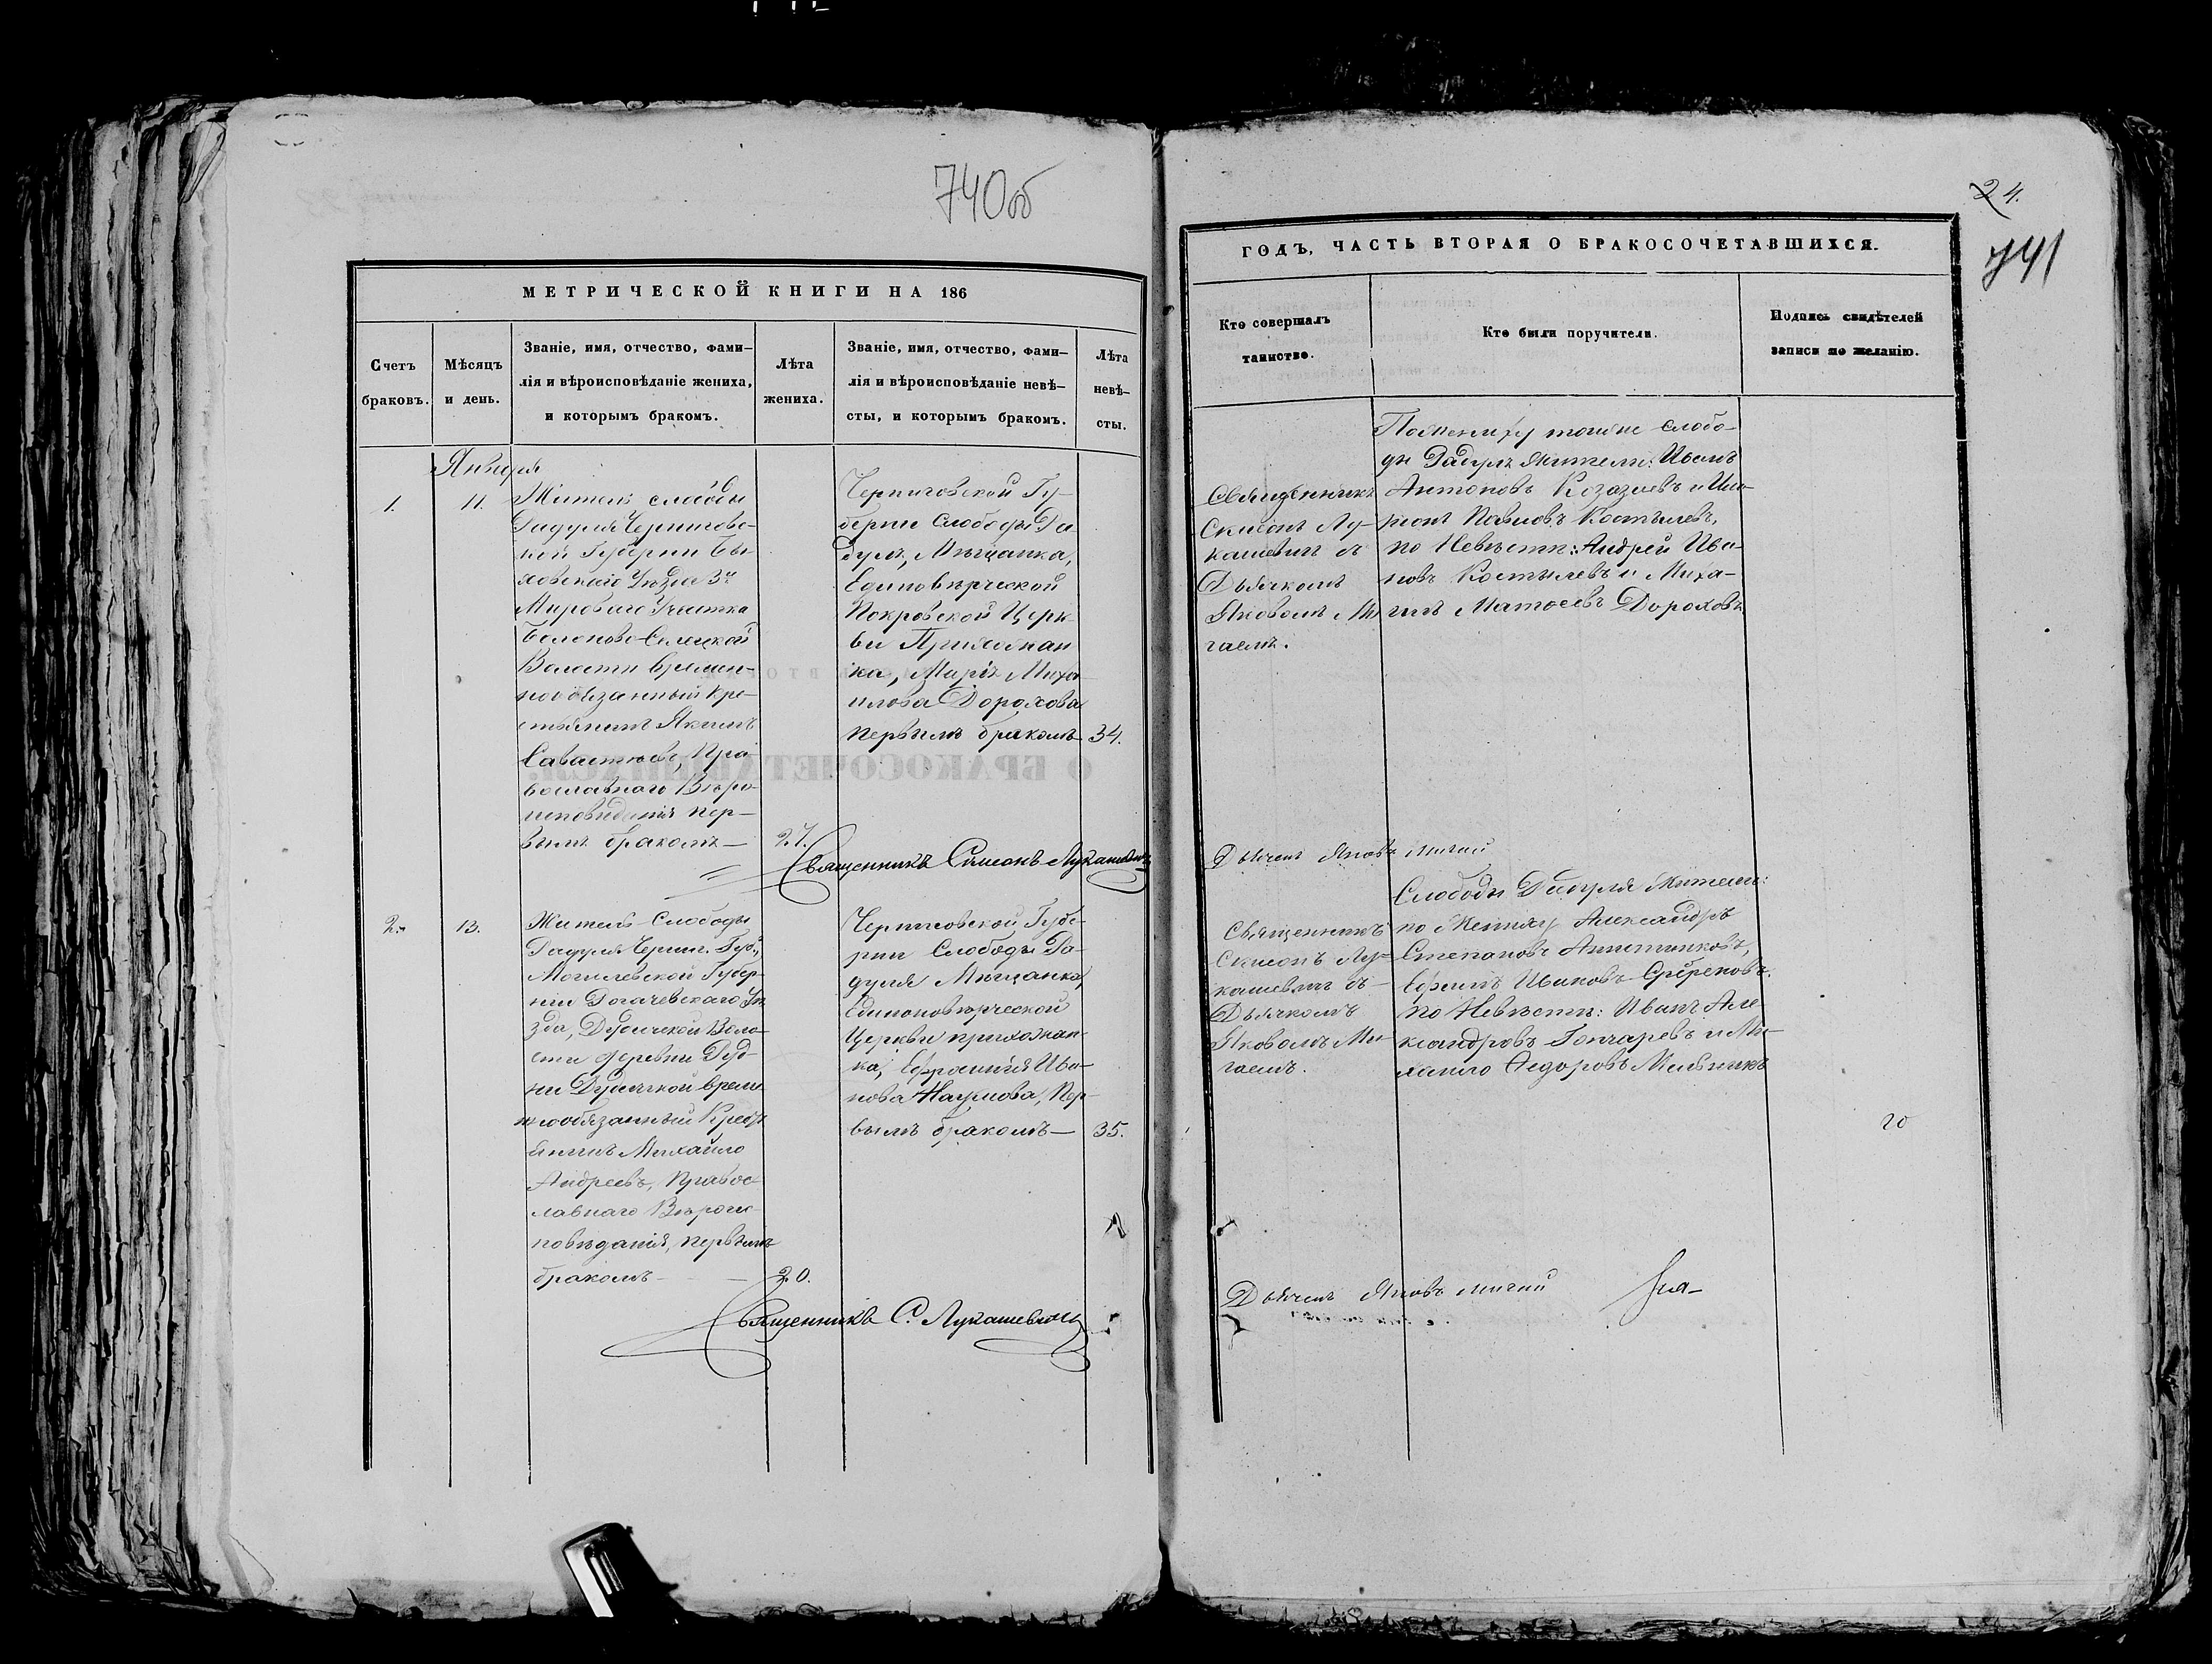 740об
МЕТРИЧЕСКОЙ КНИГИ НА 186
Счетъ
браковъ.
Мѣсяцъ
и день.
Званіе, имя, отчество, фами-
лія и вѣроисповѣданіе жениха,
и которымъ бракомъ.
Лѣта
жениха.
Званіе, имя, отчество, фами-
лія и вѣроисповѣданіе невѣ-
сты, и которымъ бракомъ.
Лѣта
невѣ-
сты.
Января
1.
11.
Житель слободы
Радуля Чернигов-
кой Губерніи Бы-
ховскаго Уѣзда 3го
Мироваго Участка
Волости времен-
нообязанный кре-
стьянинъ Якимъ
Савастѣевъ, Пра-
вославнаго Вѣро-
исповѣданія пер-
вымъ бракомъ—
27.
Черниговской Гу-
берніи Слободы Ра
дуля, Мѣщанка,
Единовѣрческой
Покровской Церк-
ви Прихожан
ка, Марія Миха
илова Дорохова
первымъ бракомъ
34.
Священникъ Симеонъ Лукашевичъ
2.
13.
Житель Слободы
Радуля Черниг. Губ.,
Могилевской Губер-
ніи Рогачевскаго Уѣ
зда, Дудичской Воло-
сти деревни Руд-
ни Дудичской време
ннообязанный Крест
янинъ Михайло
Андреевъ, Правос-
лавнаго Вѣроис-
повѣданія, первымъ
бракомъ—
20.
Черниговской Губе-
рніи Слободы Ра-
дуля Мѣщанка,
Единовѣрческой
Церкви прихожан-
ка, Ефросинія Ива-
нова Наумова, Пер-
вымъ бракомъ—
35.
Священникъ С. Лукашевичъ
24.
741
ГОДЪ, ЧАСТЬ ВТОРАЯ О БРАКОСОЧЕТАВШИХСЯ.
Кто совершалъ
таинство.
Кто были поручители.
Подпись свидѣтелей
записи по желанію.
Священникъ
Симеонъ Лу-
кашевичъ съ
Дьячкомъ
Яковомъ Ми
гаемъ.
По жениху тойже слобо-
ды Радуля жители: Иванъ
Антоновъ
Павловъ Костылевъ,
по Невѣстѣ: Андрей Ива-
новъ Костылевъ и Миха-
илъ Матвеевъ Дороховъ
Дьячекъ Яковъ Мигай
Священникъ
Симеонъ Лу-
кашевичъ съ
Дьячкомъ
Яковомъ Ми-
гаемъ.
Слободы Радуля Жители:
по Жениху Александръ
Степановъ
Ефимъ Ивановъ
по Невѣстѣ: Иванъ Але-
ксандровъ Гончаревъ и Ми-
хаило Федоровъ Мельникъ
Дьячекъ Яковъ Мигай